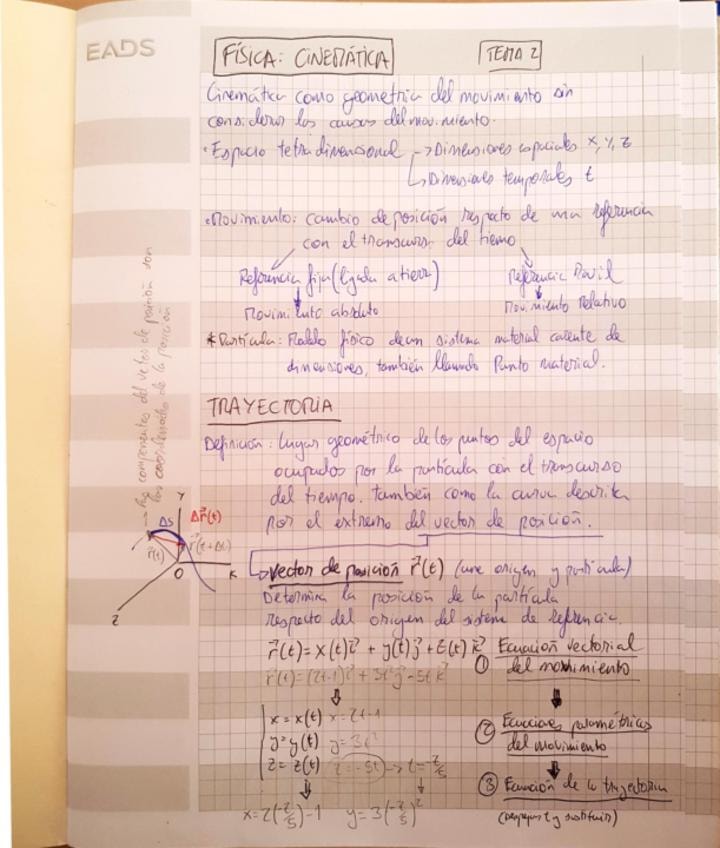 EADS
FÍSICA: CINEMÁTICA
TEMA 2
Cinemática como geometria del movimiento sin
considerar las causas del movimiento.
• Espacio tetradimensional -> Dimensiones espaciales x, y, z
↳ Dimensiones temporales t
• Movimiento: cambio de posición respecto de una referencia
con el transcurso del tiemo
Referencia fija (ligada a tierra)
Referencia Movil
Movimiento absoluto
Movimiento Relativo
* Partícula: Modelo físico de un sistema material carente de
dimensiones, también llamado Punto material.
TRAYECTORIA
Definición: Lugar geométrico de los puntos del espacio
ocupados por la partícula con el transcurso
del tiempo. También como la curva descrita
por el extremo del vector de posición.
-> Las componentes del vector de posición son
las coordenadas de la posición
Y
ΔS
Δr⃗(t)
r⃗(t)
r⃗(t+Δt)
O
X
Z
↳ Vector de posición r⃗(t) (une origen y partícula)
Determina la posición de la partícula
respecto del origen del sistema de referencia.
r⃗(t) = x(t)i⃗ + y(t)j⃗ + z(t)k⃗
① Ecuación vectorial
del movimiento
r⃗(t) = (2t-1)i⃗ + 3t²j⃗ - 5t k⃗
x = x(t) x = 2t-1
y = y(t) y = 3t²
z = z(t) z = -5t -> t = -z/5
② Ecuaciones paramétricas
del movimiento
③ Ecuación de la trayectoria
(Despejar t y sustituir)
x = 2(-z/5)-1 y = 3(-z/5)²